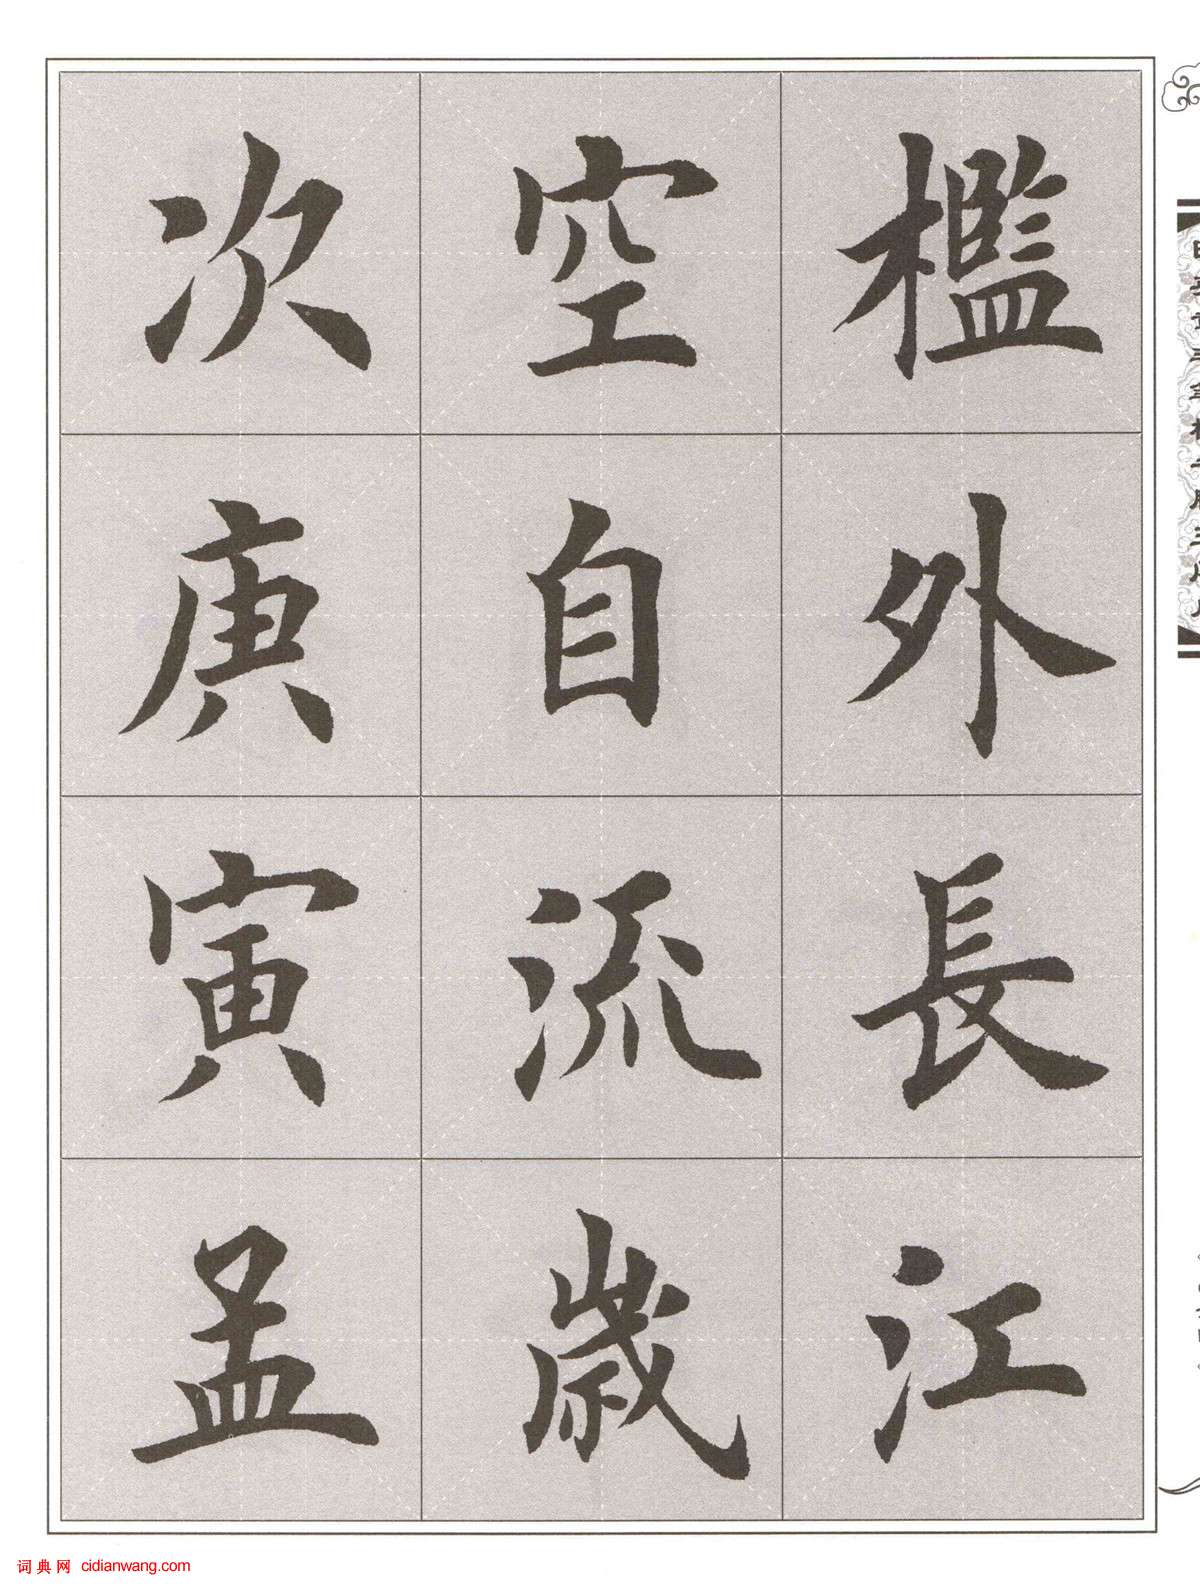 檻外長江
空自流歲
次庚寅孟
词典网 cidianwang.com